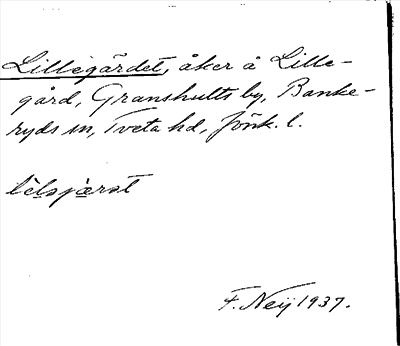 Lillegärdet, åker å Lille-
gård, Granshults by, Banke-
ryds sn, Tveta hd, Jönk. l.
F. Neij 1937.